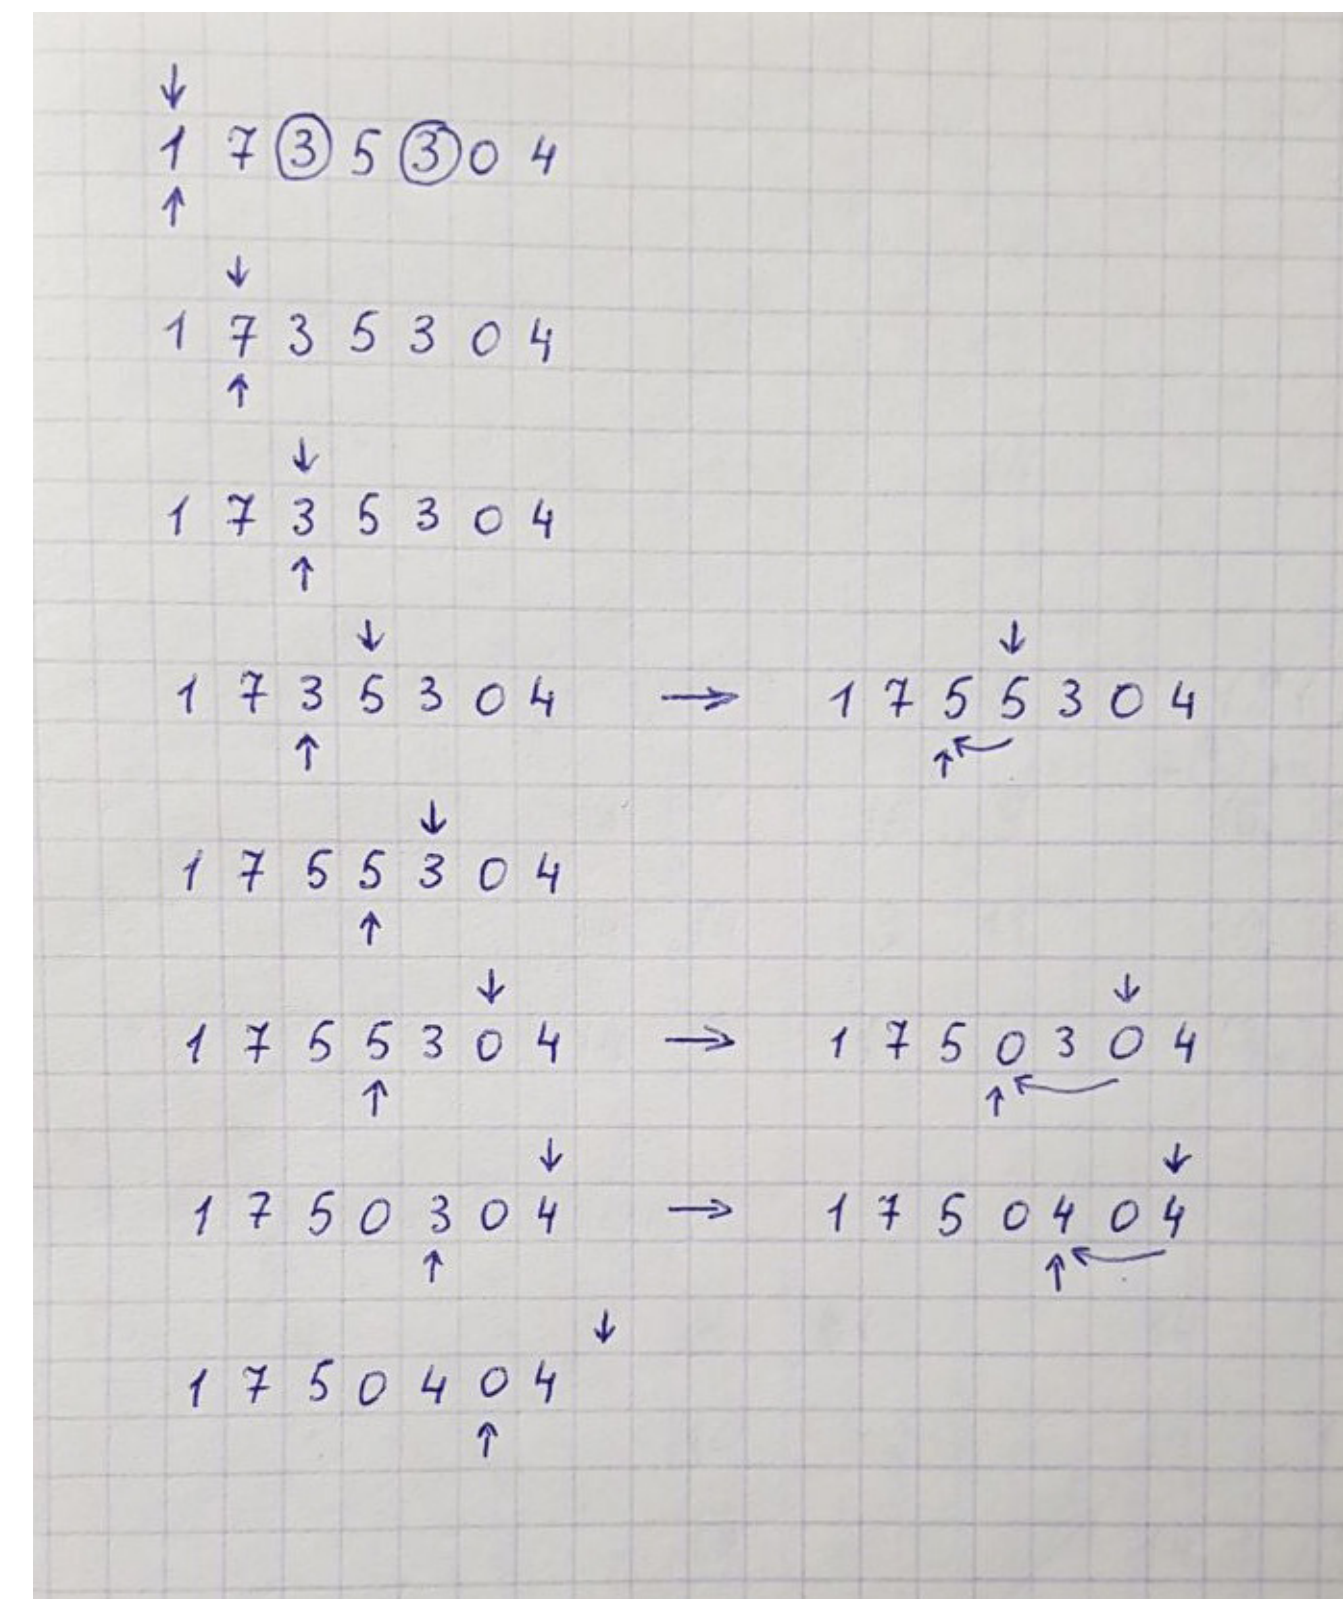 ↓
1 7 3 5 3 0 4
↑
↓
1 7 3 5 3 0 4
↑
↓
1 7 3 5 3 0 4
↑
↓ ↓
1 7 3 5 3 0 4 → 1 7 5 5 3 0 4
↑ ↑
↓
1 7 5 5 3 0 4
↑
↓ ↓
1 7 5 5 3 0 4 → 1 7 5 0 3 0 4
↑ ↑
↓ ↓
1 7 5 0 3 0 4 → 1 7 5 0 4 0 4
↑ ↑
↓
1 7 5 0 4 0 4
↑